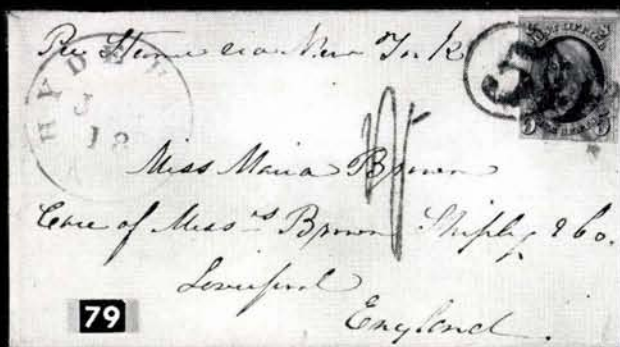 Per Steamer via New York
5
POST OFFICE
5 5
HYDE
J
18
Miss Maria Brown
Care of Mess^rs Brown Shipley & Co.
Liverpool
England.
79